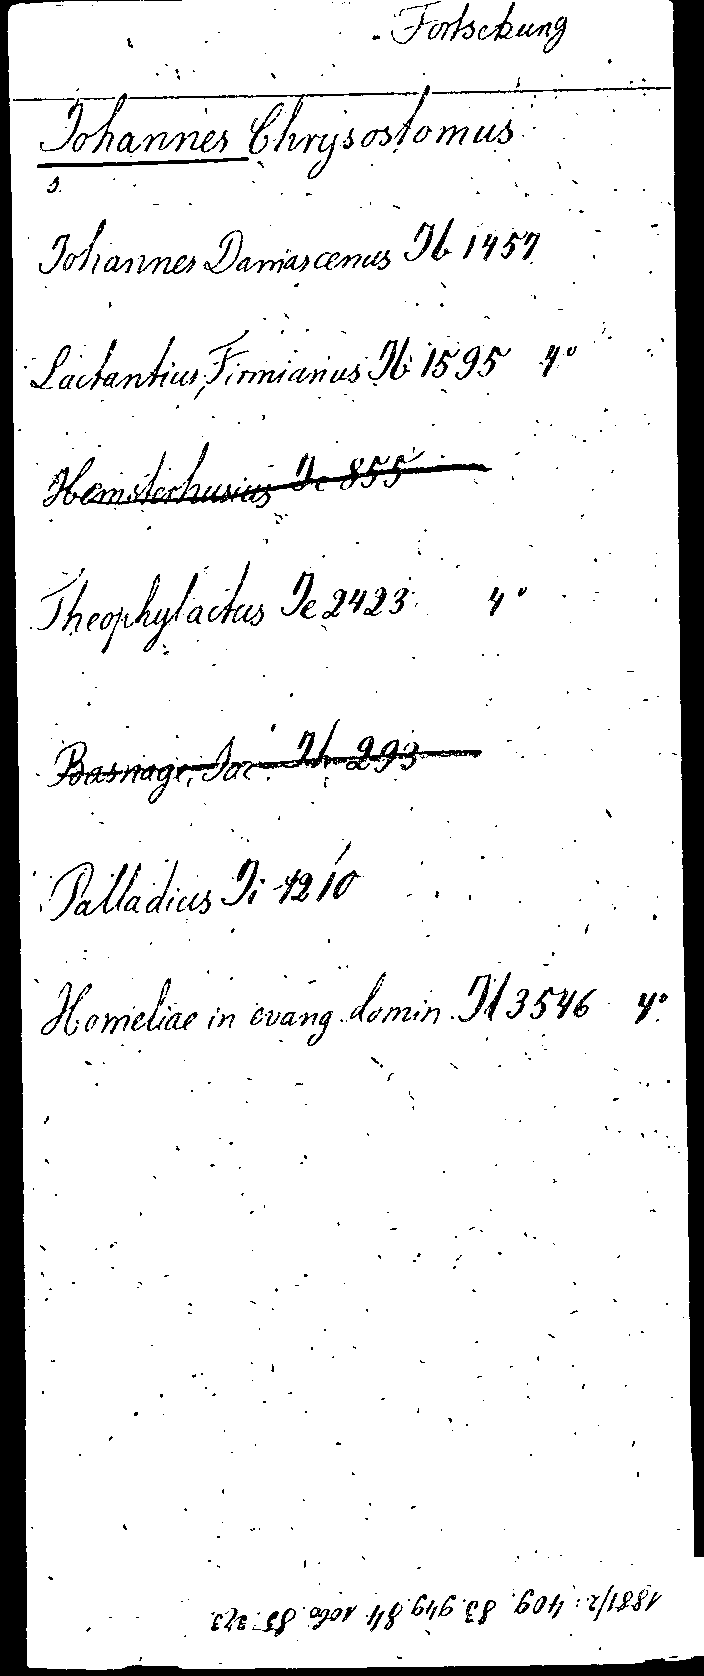 Fortsetzung
Johannes Chrysostomus
s.
Johannes Damascenus Jb 1457
Lactantius, Firmianus Jb 1595 4°
Hemsterhusius Jc 855
Theophylactus Je 2423 4°
Basnage, Jac. Jh 293
Palladius Ji 1210
Homeliae in evang. domin. Jl 3546 4°
1881/2: 409. 83. 949. 84. 1060. 85. 273